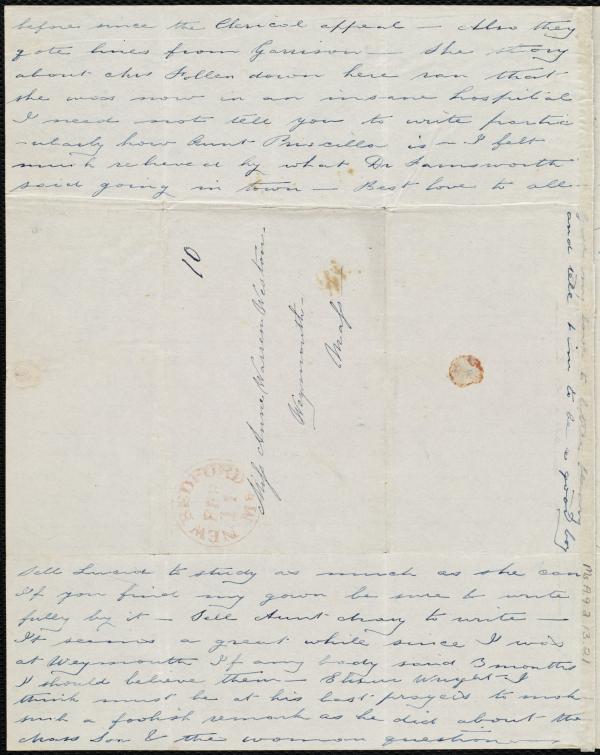 before since the Clerical appeal — Also they
quote lines from Garrison — The story
about Chas Follen down here ran that
she was now in an insane hospital
I need not tell you to write partic
-ularly how Aunt Priscilla is — I felt
much relieved by what Dr Farnsworth
said going in town — Best love to all —
and tell him to be a good boy
10
Miss Anne Warren Weston.
Weymouth —
Mass
NEW BEDFORD MS
FEB
11
Tell Lucia to study as much as she can
If you find my gown be sure to write
fully by it — Tell Aunt Mary to write —
It seems a great while since I was
at Weymouth If any body said 3 months
I should believe them — Elizur Wright I
think must be at his last prayers to make
such a foolish remark as he did about the
Mass Soc & the woman question
Ms A.9.2.13.21